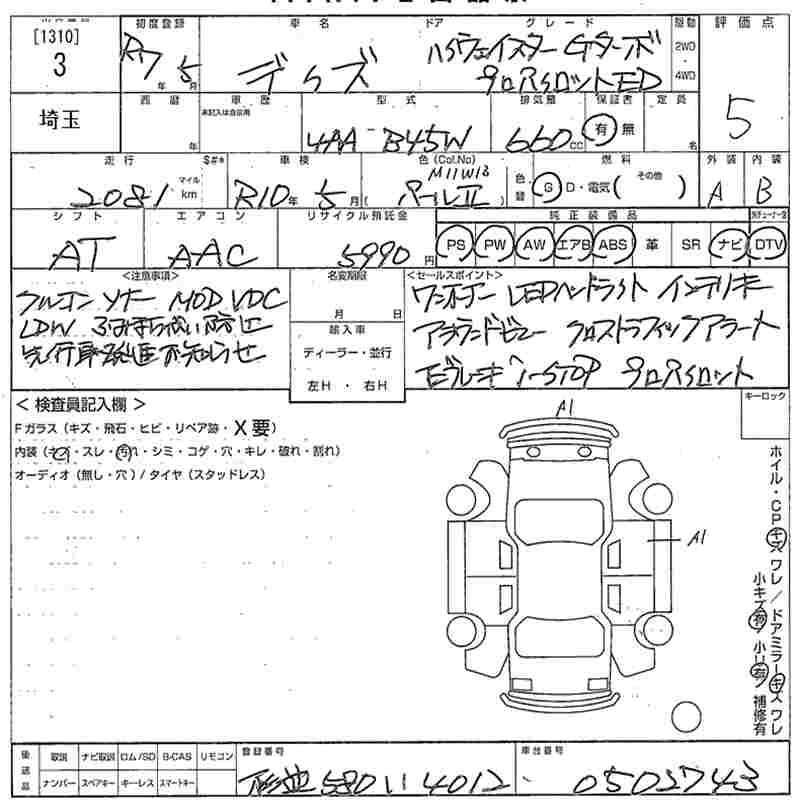 [1310] 初度登録 車名 ドア グレード 駆動 評価点
3 R7年5月 デイズ ハイウェイスター Gターボ 2WD 5
プロパイロットED 4WD
埼玉 西暦 車歴 型式 排気量 保証書 定員
年 未記入は自家用 4AA B45W 660cc 有 無 名
走行 $#* 車検 色(Col.No) 燃料 外装 内装
2081 マイル km R10年5月 ( M11W13 パールⅡ 色替 G D・電気( その他 ) A B
シフト エアコン リサイクル預託金 純正装備品
AT AAC 5990円 PS PW AW エアB ABS 革 SR ナビ DTV
<注意事項> 名変期限 <セールスポイント>
フルセグ ソナー MOD VDC 月 日 ワンオーナー LEDヘッドライト インテリキー
LDW ふみまちがい防止 輸入車 アラウンドビュー クロストラフィックアラート
先行車発進お知らせ ディーラー・並行 Eブレーキ I-STOP プロパイロット
左H・右H
<検査員記入欄> キーロック
Fガラス(キズ・飛石・ヒビ・リペア跡・X要)
内装(キズ・スレ・汚れ・シミ・コゲ・穴・キレ・破れ・割れ)
オーディオ(無し・穴)/タイヤ(スタッドレス)
A1
A1
ホイル・CPキズワレ/ドアミラーキズワレ
小キズ有 小凹有 補修有
後送品 取説 ナビ取説 ロム/SD B-CAS リモコン 登録番号 車台番号
ナンバー スペアキー キーレス スマートキー 580 い 4012 0502743